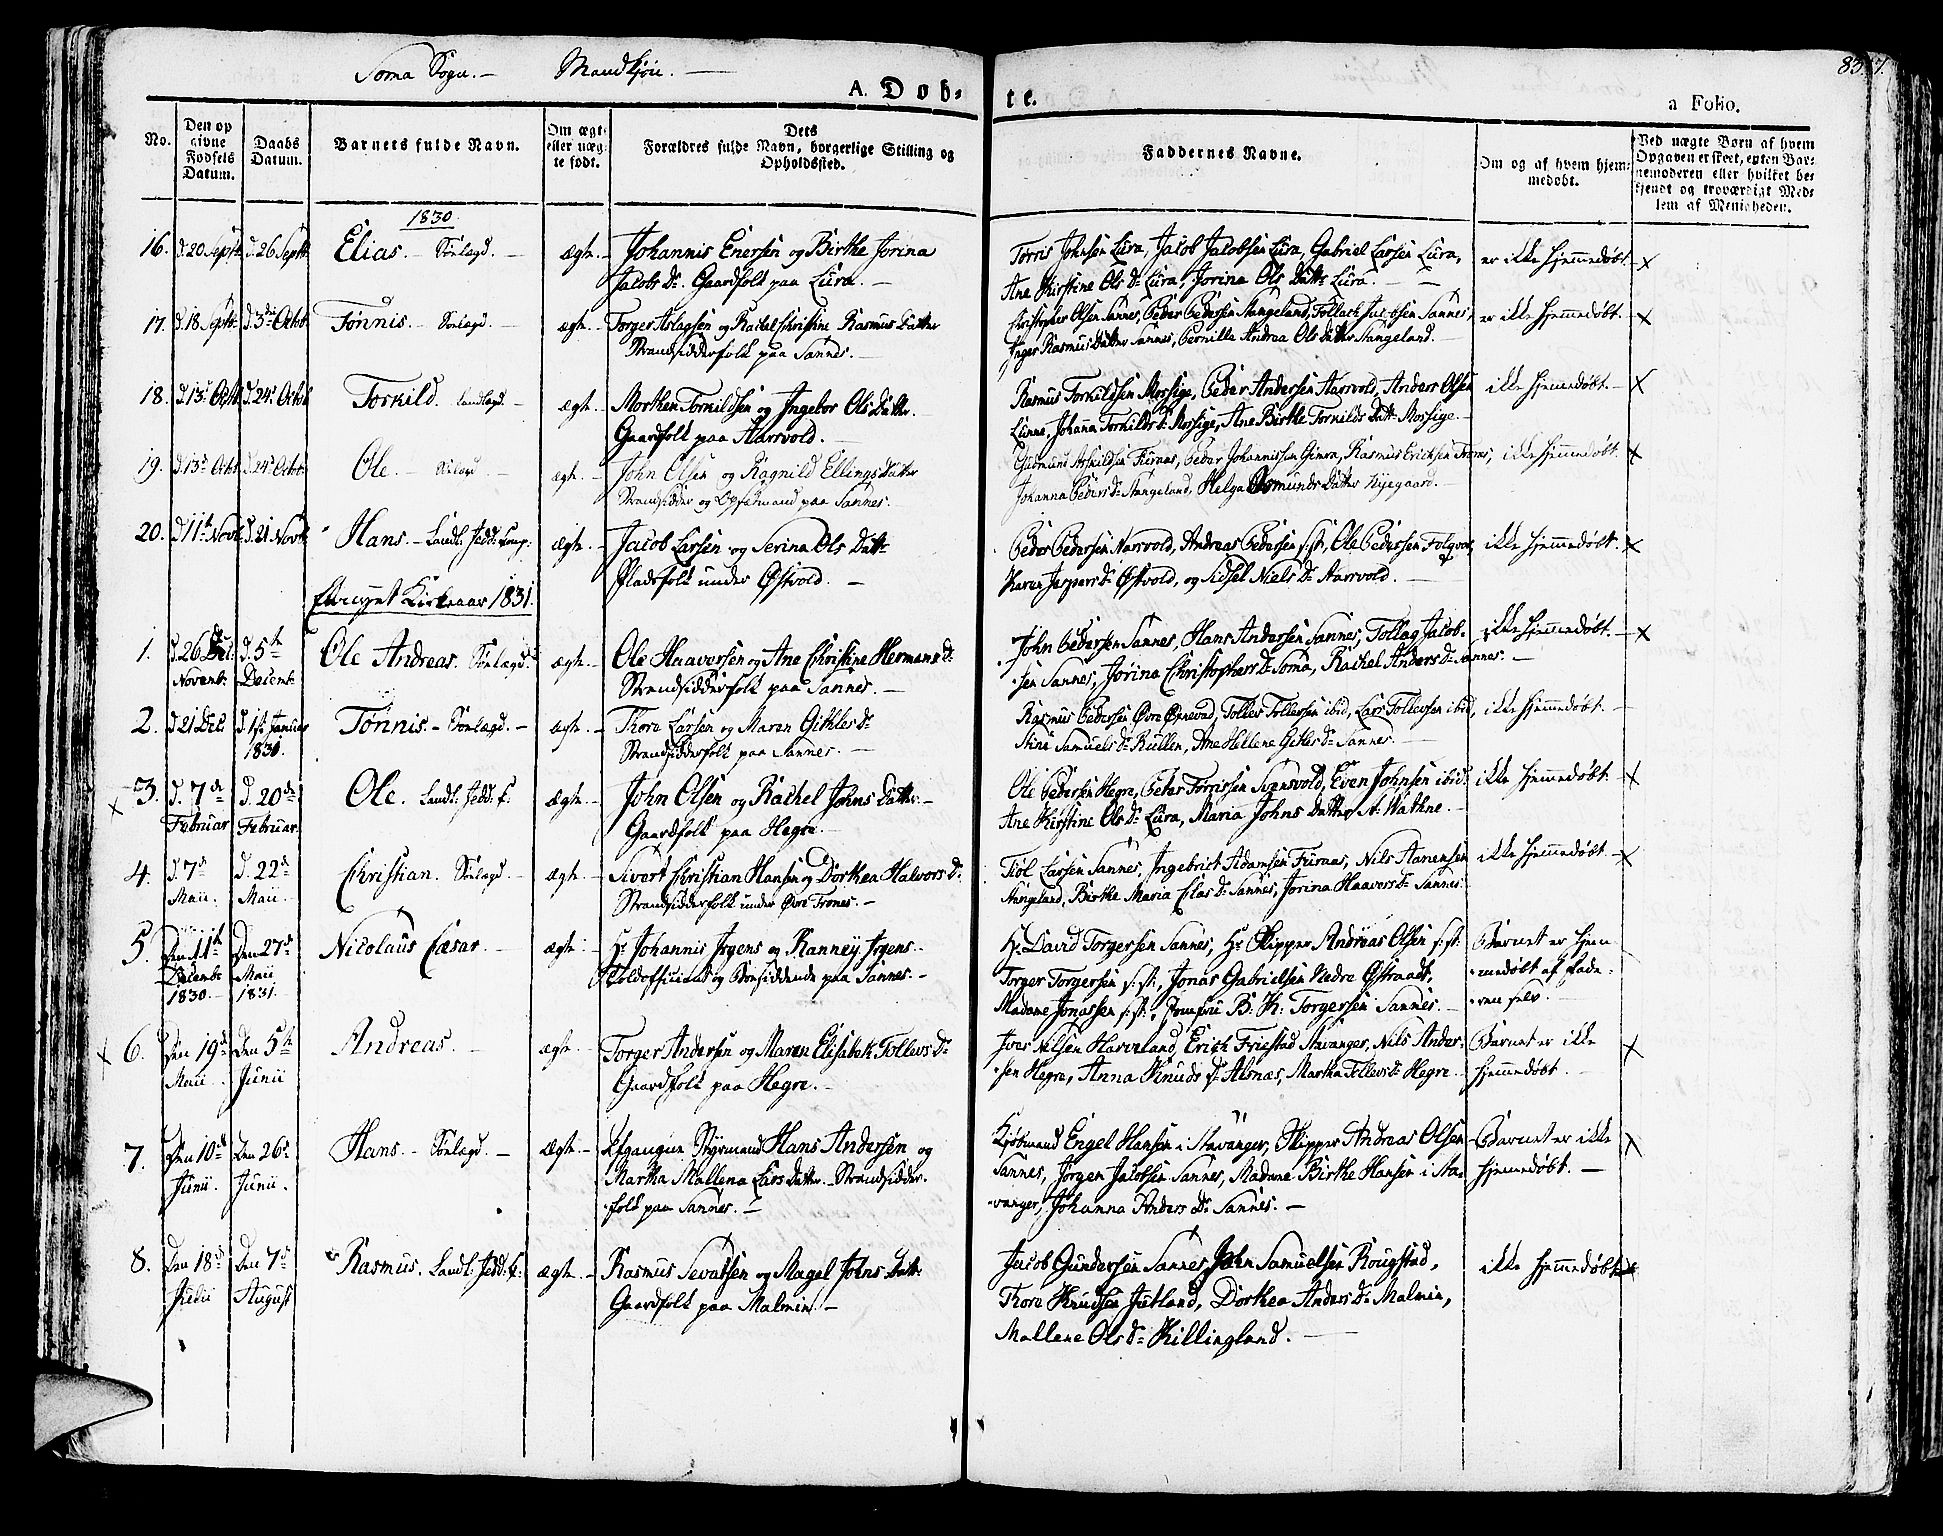 Soma Sogn. — Mandkjön. —
83. 7.
A. Döb-
te.
a Folio.
No.
Den op
givne
Fødsels
Datum.
Daabs
Datum.
Barnets fulde Navn.
Om ægt-
eller uæg-
te født.
Dets
Forældres fulde Navn, borgerlige Stilling og
Opholdssted.
Faddernes Navne.
Om og af hvem hjem-
medøbt.
Ved uægte Børn af hvem
Opgaven er skeet, enten Bar-
nemoderen eller hvilket be-
kjendt og troværdigt Med-
lem af Menigheden.
1830
16. d. 20 Septbr d. 26 Septbr Elias. — Sönlagd. — ægte. — Johannis Enersen og Birthe Jorina
Jacobs Dr. Gaardfolk paa Lura. —
Torris Johnsen Lura, Jacob Jacobsen Lura, Gabriel Larsen Lura,
Ane Kirstine Ols Dr. Lura, Jorina Ols Datter Lura. —
er ikke hjemmedøbt. — x
17. d. 18 Septbr. d. 3die Octob Tønnis. — Sönlagd. ægte. — Torger Aslagsen og Rachel Christine Rasmus Datter
Strandsidderfolk paa Sannes. —
Christopher Olsen Sannes, Peder Pedersen Stangeland, Tollack Jacobsen Sannes,
Inger Rasmus Datter Sannes, Pernilla Andrea Ols Datter Stangeland. —
er ikke hjemmedøbt. — x
18. d. 13de Octb d. 24de Octob Torkild. Landlagd. — ægte. — Morthen Torkildsen og Ingebor Ols Datter.
Gaardfolk paa Aarrvold. —
Rasmus Torkildsen Mossige, Peder Andersen Aarrvold, Anders Olsen
Lunne, Johanna Torkilds Dr. Mossige, Ane Birthe Torkilds Datt. Mossige. —
ikke hjemmedøbt. — x
19. d. 13de Octb d. 24de Octob Ole. — Sönlagd. ægte. — John Olsen og Ragnild Ellings Datter
Strandsidder og paa Sannes. —
Gudmund Askildsen Furaas, Peder Johannissen Gimra, Rasmus Ericksen Trones,
Johanna Peders Dr. Stangeland, Helga Osmunds Datter Nyegaard. —
ikke hjemmedøbt. x
20. d. 11te Novb. d. 21 Novb. Hans. — Landl: Jedd: Comp: ægte. — Jacob Larsen og Serina Ols Datter
Pladsfolk under Østvold. —
Peder Pedersen Aarrvold, Andreas Pedersen s:st:, Ole Pedersen Folqvor,
Karen Jespers Dr. Østvold, og Sidsel Niels Dr. Aarrvold. —
ikke hjemmedøbt. — x
Kirkeaar 1831.
1. d. 26
Novemb. d. 5te
Decemb. Ole Andreas. Sönlagd. ægte. — Ole Haaversen og Ane Christine Hermans Dr.
Strandsidderfolk paa Sannes. —
John Pedersen Sannes, Hans Andersen Sannes, Tollag Jacob-
sen Sannes, Jorina Christophers Dr. Soma, Rachel Anders Dr. Sannes. —
ikke hjemmedøbt. — x
2. d. 21 Decb d. 1ste Januar
1831. Tönnis. — Sönlagd. — ægte. — Thore Larsen og Maren Gitles Dr.
Strandsidderfolk paa Sannes. —
Rasmus Pedersen Øvre Ørnevad, Tolles Tollersen ibid, Lars Tollevsen ibid,
Stine Samuels Dr. Kullen, Ane Hellene Gitles Dr. Sannes. —
ikke hjemmedøbt. —
x 3. d. 7de
Februar d. 20de
Februar. Ole. Landl: Jedd: C: ægte. — John Olsen og Rachel Johns Datter. —
Gaardfolk paa Hegre. —
Ole Pedersen Hegre, Peter Tørrissen Svensvold, Even Johnsen ibid.
Ane Kirstine Ols Dr. Lura, Maria Johns Datter St. Wathne. —
ikke hjemmedøbt. — x
4. d. 7de
Maii. d. 22de
Maii. Christian. Sönlagd. — ægte. — Sivert Christian Hansen og Dorthea Halvors Dr.
Strandsidderfolk under Øvre Trones. —
Tiöl Larsen Sannes, Ingebrict Adamsen Furaas, Nils Aanensen
Stangeland, Birthe Maria Elas Dr. Sannes, Jorina Haavers Dr. Sannes.
ikke hjemmedøbt. — x
5. Den 11te
Decembr
1830. — Den 27de
Maii
1831. Nicolaus Cæsar. — ægte. Hr. Johannis Irgens og Ranney Irgens.
Toldofficiant og Boesiddende paa Sannes. —
Hr. David Torgersen Sannes, Hr. Skipper Andreas Olsen s:st:
Torger Torgersen s:st:, Jonas Gabrielsen Nedre Østraadt,
Madame Jonassen s:st:, Jomfrue B. K. Torgersen Sannes. —
Barnet er hjem-
medøbt af Fade-
ren selv. —
x 6. Den 19de
Maii. Den 5te
Junii Andreas. — ægte. — Torger Andersen og Maren Elisabet Tollevs Dr.
Gaardfolk paa Hegre. —
Iver Nilsen Harveland, Erich Friestad Stavanger, Nils Ander-
sen Hegre, Anna Knuds Dr. Alsnæs, Martha Tollevs Dr. Hegre
Barnet er ikke
hjemmedøbt. x
7. Den 10de
Junii. Den 26de
Junii. Hans. — Sönlagd. — ægte. — Afgangne Styrmand Hans Andersen og
Martha Mallena Lars Datter. — Strandsidder-
folk paa Sannes. —
Kjøbmand Engel Hansen i Stavanger, Skipper Andreas Olsen
Sannes, Jørgen Jacobsen Sannes, Madame Birthe Hansen i Sta-
vanger, Johanna Anders Dr. Sannes. —
Barnet er ikke
hjemmedøbt. — x
8. Den 18de
Julii Den 7de
August Rasmus. Landl: Jedd: C: ægte. — Rasmus Sevatsen og Magel Johns Datter
Gaardfolk paa Malmin. —
Jacob Gundersen Sannes, John Samuelsen Rougstad,
Thore Knudsen Jutland, Dorthea Anders Dr. Malmin,
Mallene Ols Dr. Killingland. —
ikke hjemmedøbt. x